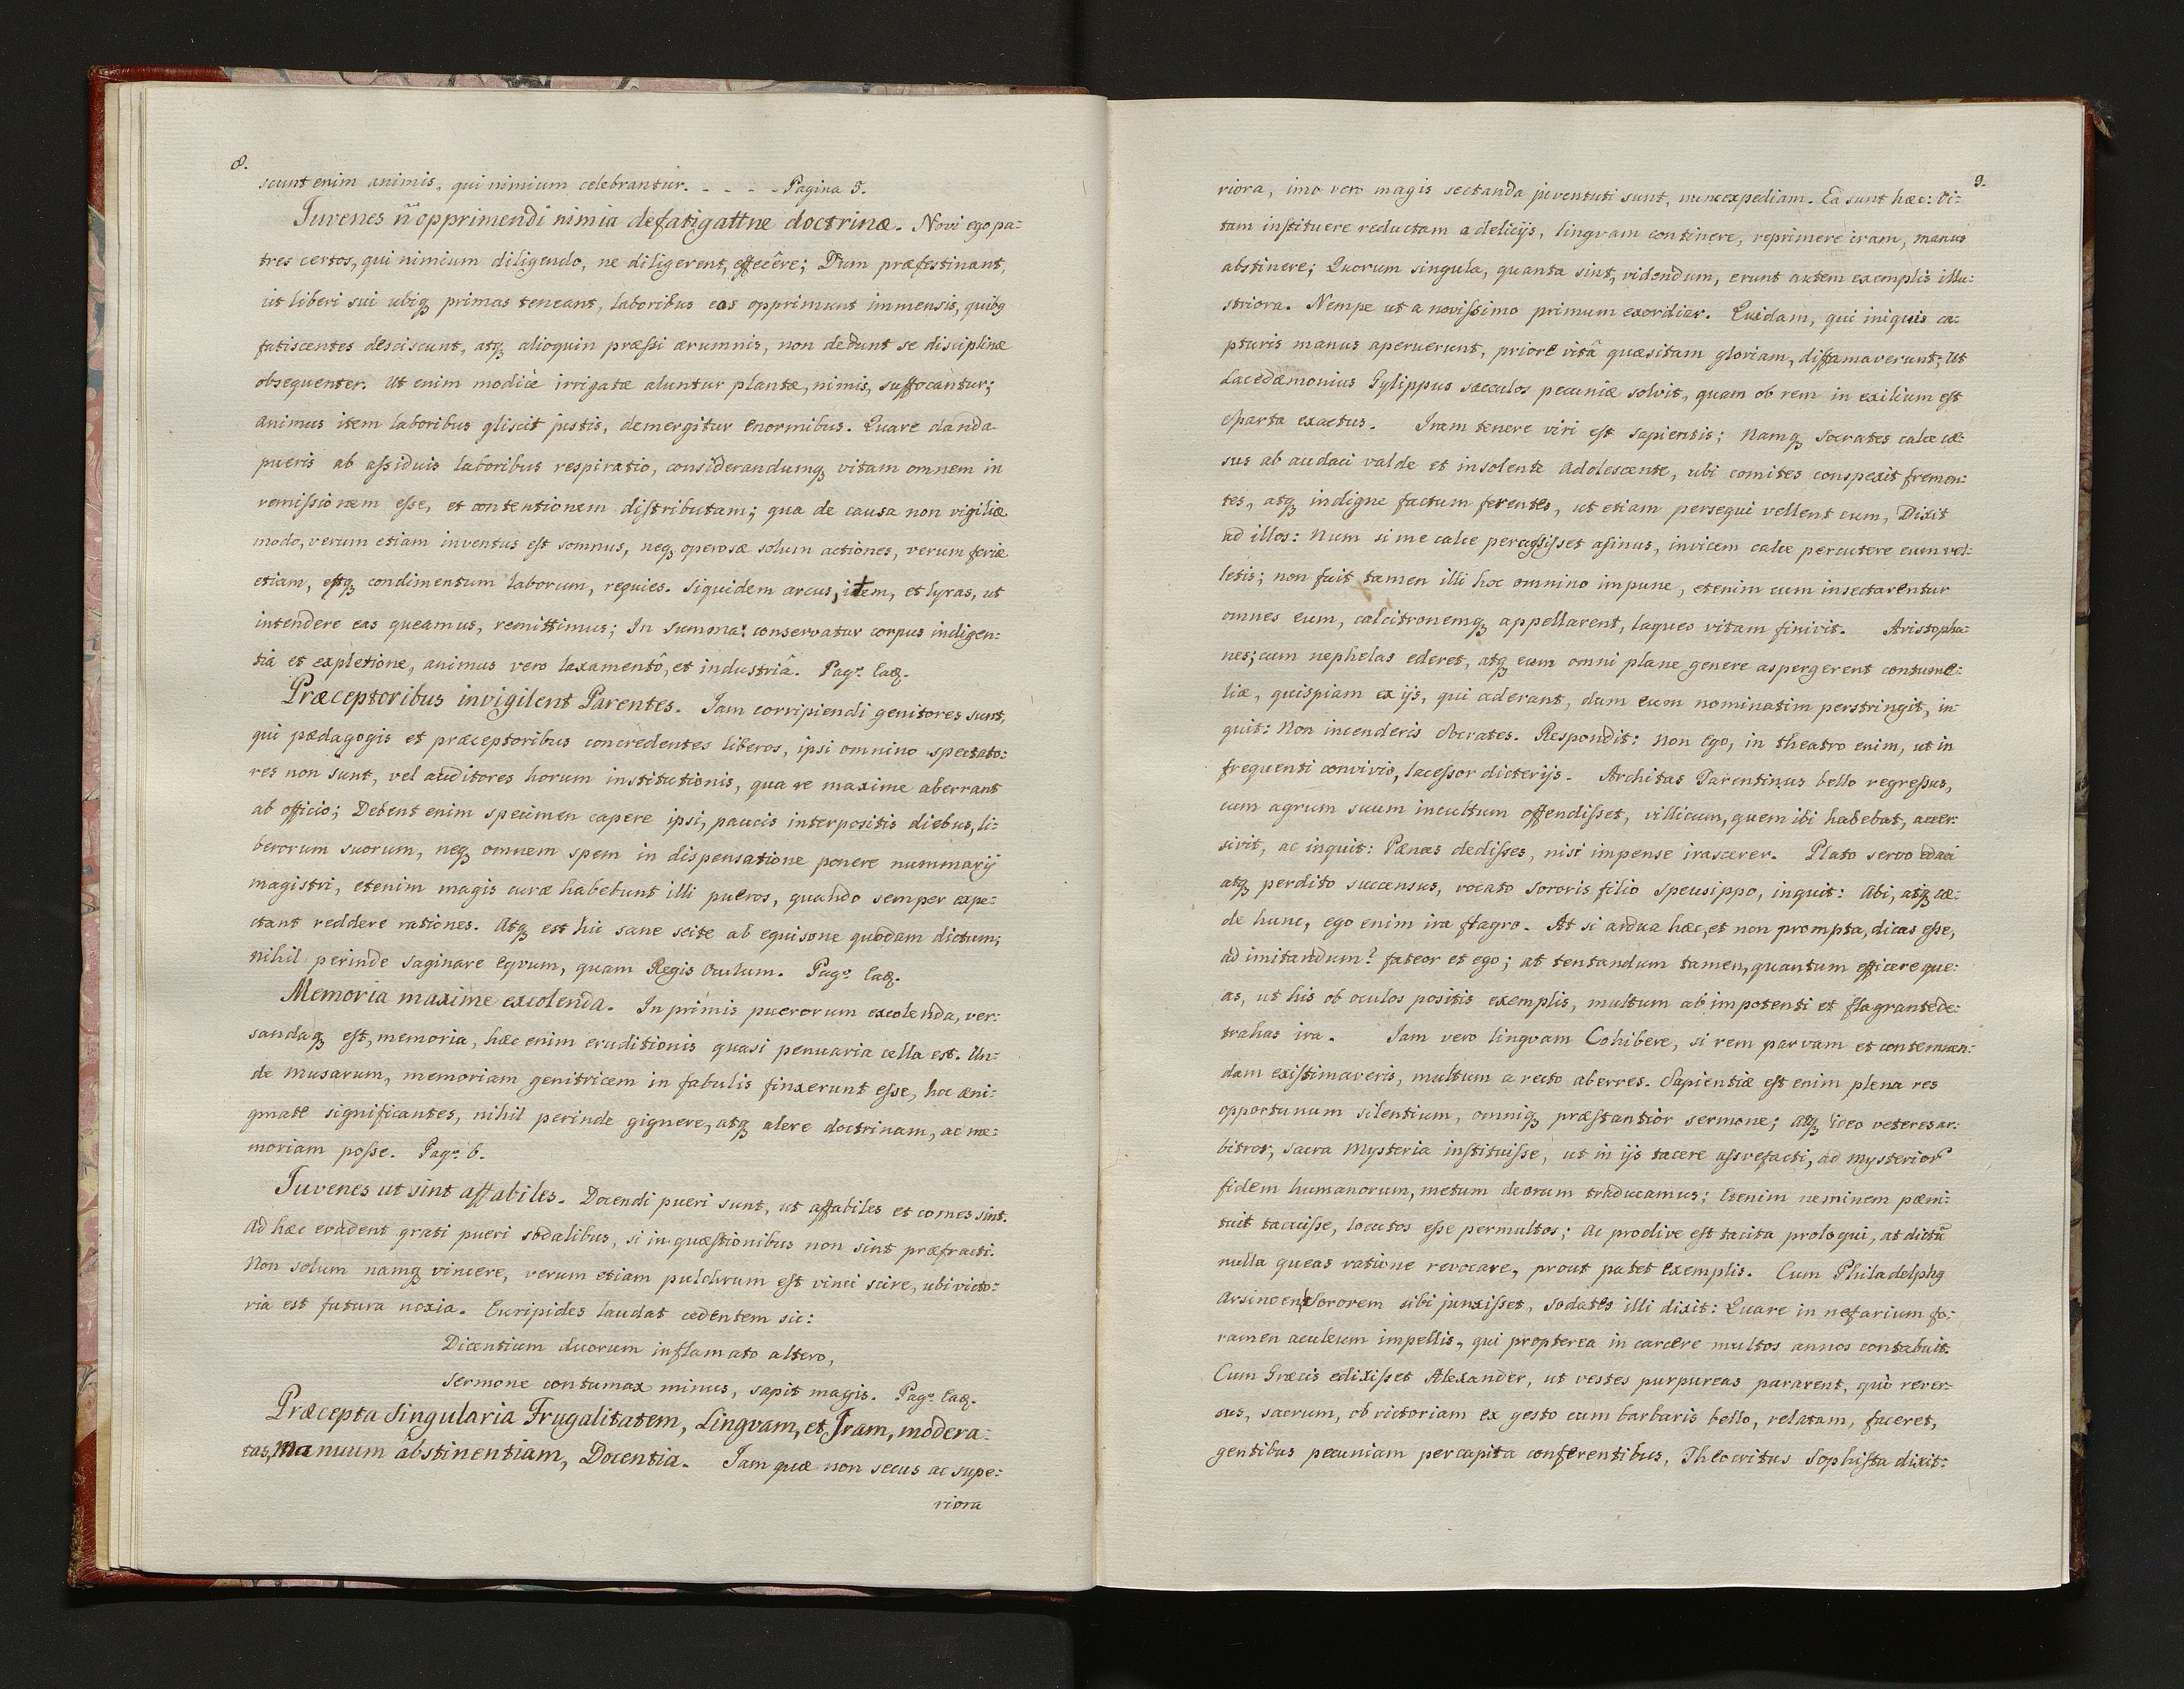 8.
scunt enim animis, qui nimium celebrantur. - - - - Pagina 5.
Juvenes n̄ opprimendi nimia defatigattne doctrinæ. Novi ego pa-
tres certos, qui nimium diligendo, ne diligerent, effecêre; Dum præfestinant,
ut liberi sui ubiq₃ primas teneant, laboribus eos opprimunt immensis, quibq
fatiscentes desciscunt, atq₃ alioquin præssi ærumnis, non dedunt se disciplinæ
obsequenter. Ut enim modicè irrigatæ aluntur plantæ, nimis, suffocantur;
animus item laboribus gliscit justis, demergitur enormibus. Quare danda
pueris ab assiduis laboribus respiratio, considerandumq₃ vitam omnem in
remissionem esse, et contentionem distributam; qua de causa non vigiliæ
modo, verum etiam inventus est somnus, neq₃ operosæ solum actiones, verum feriæ
etiam, estq₃ condimentum laborum, requies. Siquidem arcus, item, et lyras, ut
intendere eas queamus, remittimus; In summa: conservatur corpus indigen-
tiâ et expletione, animus vero laxamentô, et industriâ. Pag. eaq.
Præceptoribus invigilent Parentes. Jam corripiendi genitores sunt,
qui pædagogis et præceptoribus concredentes liberos, ipsi omnino spectato:
res non sunt, vel auditores horum institutionis, qua re maxime aberrant
ab officio; Debent enim specimen capere ipsi, paucis interpositis diebus, li-
berorum suorum, neq₃ omnem spem in dispensatione ponere nummarij
magistri, etenim magis curæ habebunt illi pueros, quando semper expe-
ctant reddere rationes. Atq₃ est hic sane scite ab equisone quodam dictum;
nihil perinde saginare eqvum, quam Regis Oculum. Pag. eaq.
Memoria maxime excolenda. In primis puerorum excolenda, ver-
sandaq₃ est, memoria, hæc enim eruditionis quasi penuaria cella est. Un-
de Musarum, memoriam genitricem in fabulis finxerunt esse, hoc æni-
gmate significantes, nihil perinde gignere, atq₃ alere doctrinam, ac me-
moriam posse. Pag. 6.
Juvenes ut sint affabiles. Docendi pueri sunt, ut affabiles et comes sint.
Ad hæc evadent grati pueri sodalibus, si in quæstionibus non sint præfracti.
Non solum namq₃ vincere, verum etiam pulchrum est vinci scire, ubi victo-
ria est futura noxia. Euripides laudat cedentem sic:
Dicentium duorum inflamato altero,
Sermone contumax minus, sapit magis. Pag. eaq.
Præcepta Singularia Frugalitatem, Lingvam, et Jram, modera-
tas, Manuum abstinentiam, Docentia. Jam quæ non secus ac supe-
riora
9.
riora, imo vero magis sectanda juventuti sunt, nunc expediam. Ea sunt hæc: Vi-
tam instituere reductam a delicijs, lingvam continere, reprimere iram, manus
abstinere; Quorum singula, quanta sint, videndum, erunt autem exemplis illu-
striora. Nempe ut a novissimo primum exordiar. Quidam, qui iniquis ca-
pturis manus aperuerunt, priore vitâ quæsitam gloriam, diffamaverunt; Ut
Lacedæmonius Gylippus sacculos pecuniæ solvit, quam ob rem in exilium est
Sparta exactus. Iram tenere viri est sapientis; Namq₃ Socrates calce cæ-
sus ab audaci valde et insolente Adolescente, ubi comites conspexit fremen-
tes, atq₃ indigne factum ferentes, ut etiam persequi vellent eum, Dixit
ad illos: Num si me calce percussisset asinus, invicem calce percutere eum vel-
letis; non fuit tamen illi hoc omnino impune, etenim cum insectarentur
omnes eum, calcitronemq₃ appellarent, laqueo vitam finivit. Aristopha-
nes; cum nephelas ederet, atq₃ eum omni plane genere aspergerent contume-
liæ, quispiam ex ijs, qui aderant, dum eum nominatim perstringit, in-
quit: Non incenderis Socrates. Respondit: Non Ego, in theatro enim, ut in
frequenti convivio, lacessor dicterijs. Architas Tarentinus bello regressus,
cum agrum suum incultum offendisset, villicum, quem ibi habebat, accer-
sivit, ac inquit: Pænas dedisses, nisi impense irascerer. Plato servo edaci
atq₃ perdito succensus, vocato sororis filio Speusippo, inquit: Abi, atq₃ cæ-
de hunc, ego enim ira flagro. At si ardua hæc, et non prompta, dicas esse,
ad imitandum? fateor et ego; at tentandum tamen, quantum efficere que-
as, ut his ob oculos positis exemplis, multum ab impotenti et flagrante de-
trahas ira. Jam vero lingvam Cohibere, si rem parvam et contemnen-
dam existimaveris, multum a recto aberres. Sapientiæ est enim plena res
opportunum silentium, omniq₃ præstantior sermone; atq₃ ideo veteres ar-
bitror, sacra Mysteria instituisse, ut in ijs tacere assvefacti, ad mysterior
fidem humanorum, metum deorum traducamus; Etenim neminem pæni-
tuit tacuisse, locutos esse permultos; Ac proclive est tacita proloqui, at dictū
nulla queas ratione revocare, prout patet Exemplis. Cum Philadelphq
Arsinoen Sororem sibi junxisset, sodates illi dixit: Quare in nefarium fo-
ramen aculeum impellis, qui propterea in carcere multos annos contabuit.
Cum Græcis edixisset Alexander, ut vestes purpureas pararent, quò rever-
sus, sacrum, ob victoriam ex gesto cum barbaris bello, relatam, faceret,
gentibus pecuniam per capita conferentibus, Theocritus Sophista dixit: